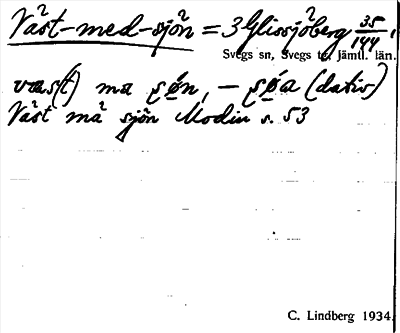 Väst-med-sjön = 3 Glissjöberg 35/144,
Svegs sn, Svegs tg. Jämtl. län.
væs(t) ma ʂǿn, – ʂǿa (dativ)
Väst mä sjön Modin s. 53
C. Lindberg 1934.